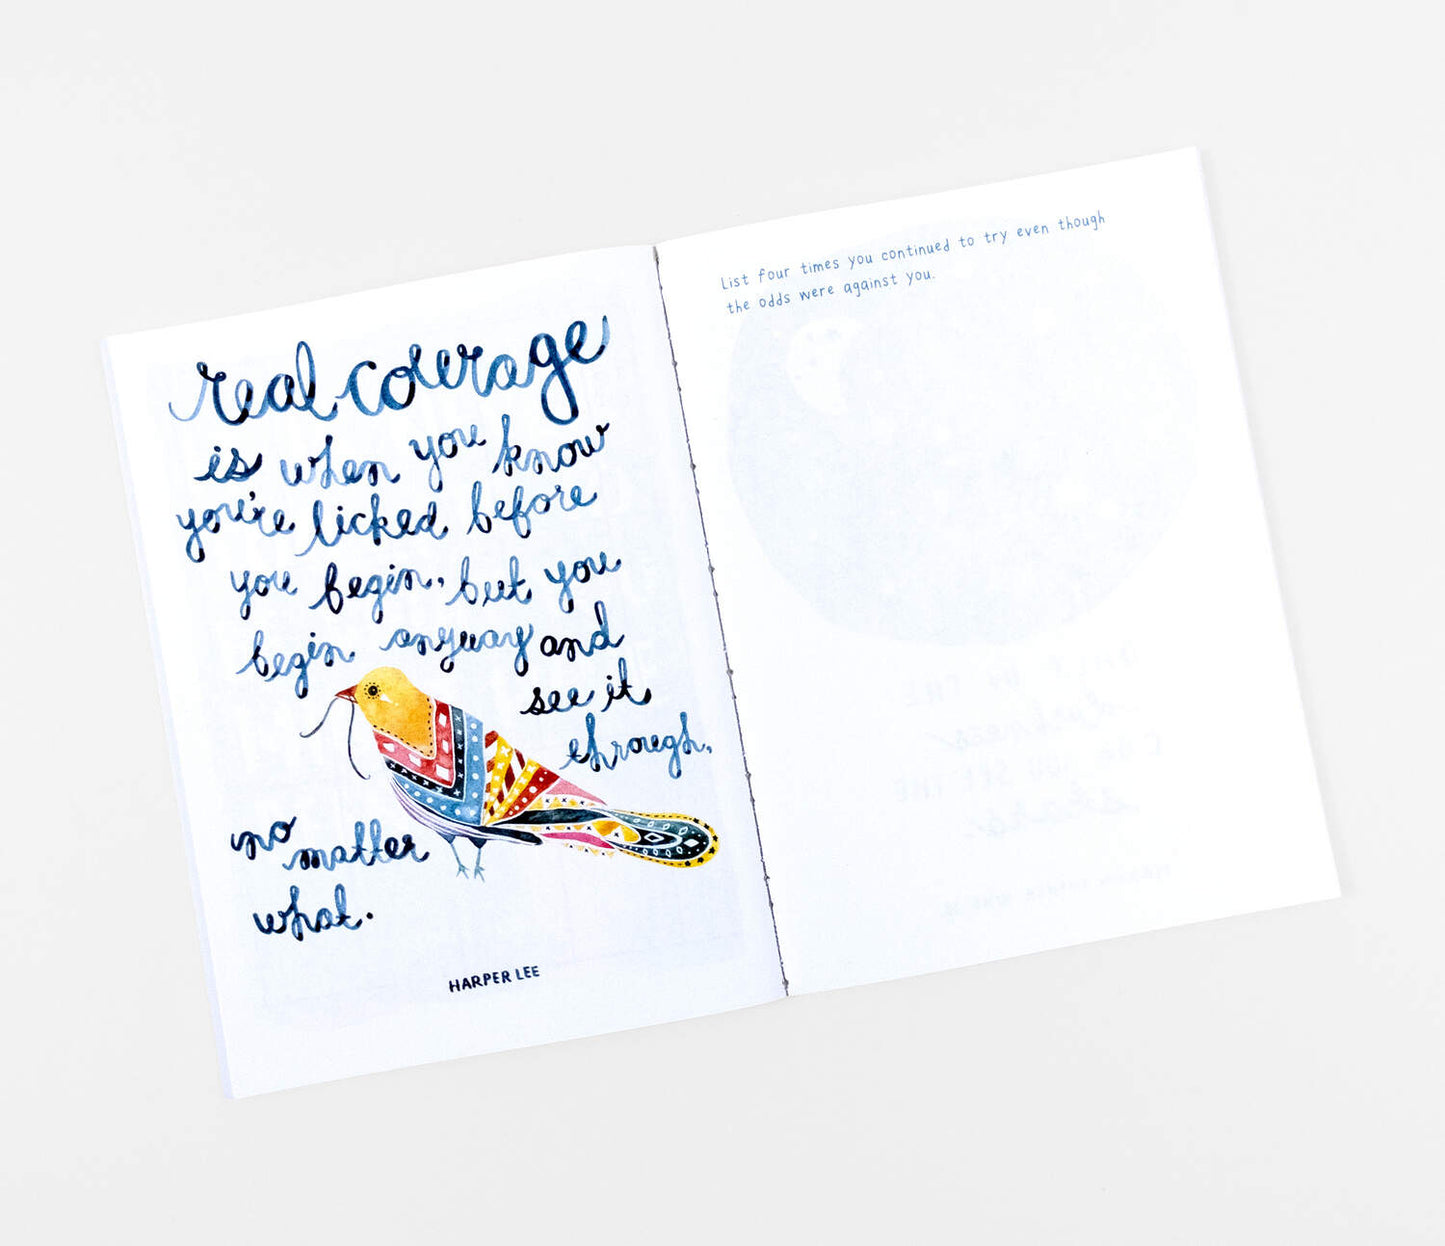 real courage
is when you know
you're licked before
you begin, but you
begin anyway and
see it
through,
no
matter
what.
HARPER LEE
List four times you continued to try even though
the odds were against you.